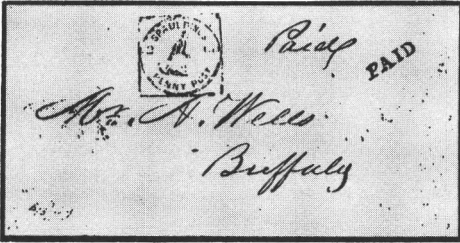 SPAULDING'S
PENNY POST
Paid
PAID
Mr. H. Wells
Buffalo